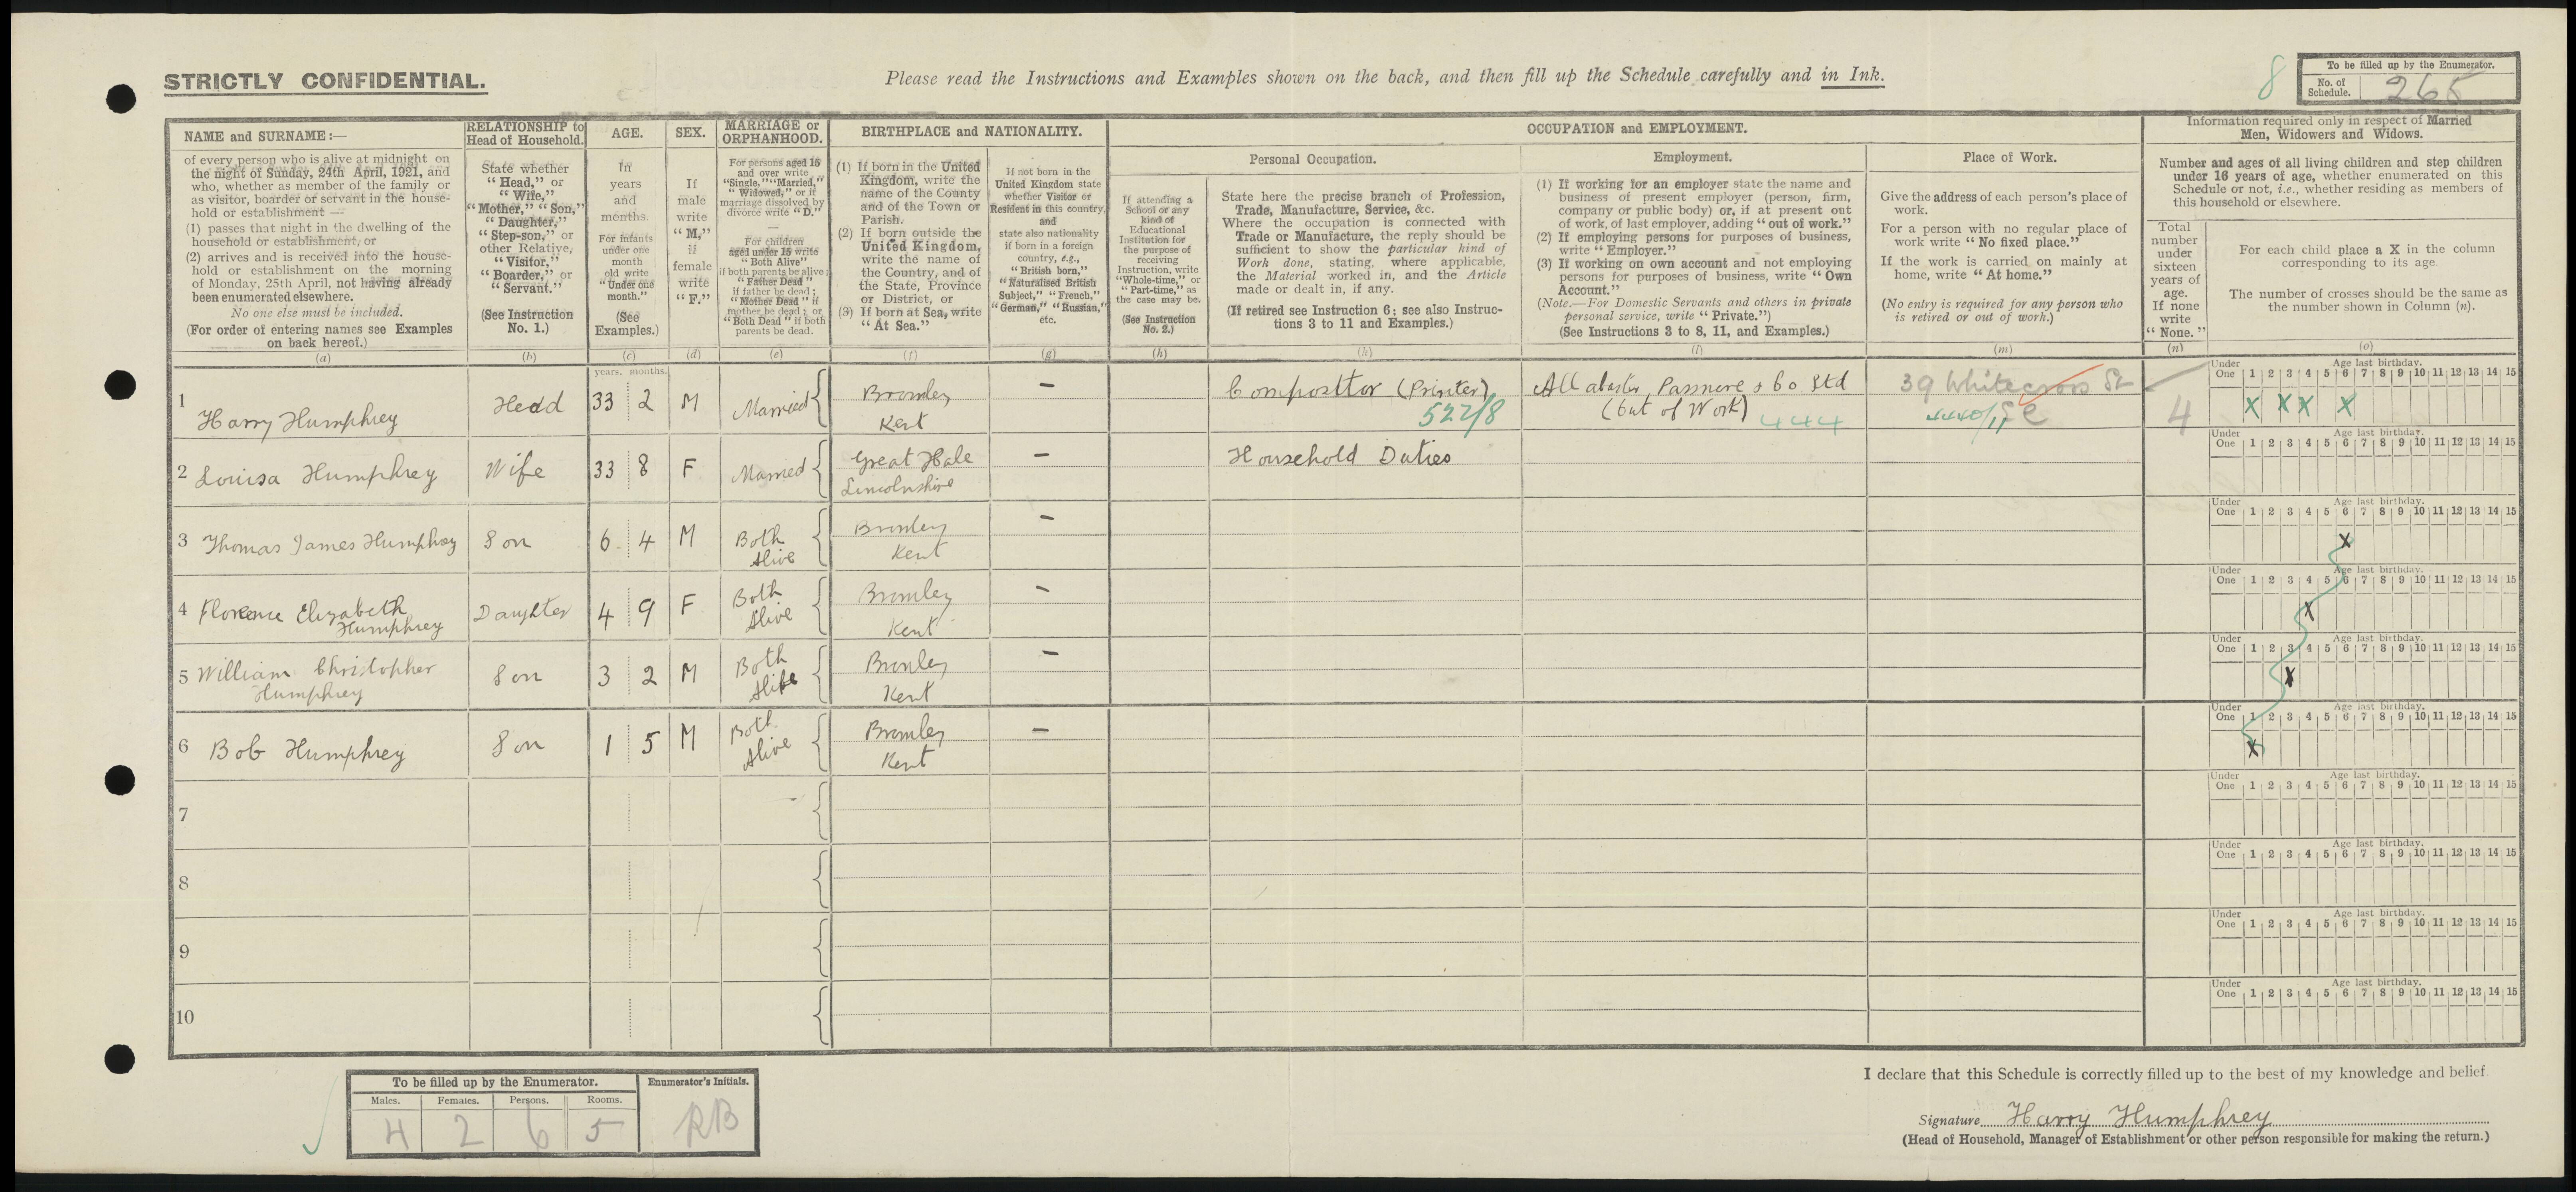 STRICTLY CONFIDENTIAL.
Please read the Instructions and Examples shown on the back, and then fill up the Schedule carefully and in Ink.
8
To be filled up by the Enumerator.
No. of Schedule. 265
NAME and SURNAME:—
of every person who is alive at midnight on
the night of Sunday, 24th April, 1921, and
who, whether as member of the family or
as visitor, boarder or servant in the house-
hold or establishment —
(1) passes that night in the dwelling of the
household or establishment, or
(2) arrives and is received into the house-
hold or establishment on the morning
of Monday, 25th April, not having already
been enumerated elsewhere.
No one else must be included.
(For order of entering names see Examples
on back hereof.)
(a)
RELATIONSHIP to
Head of Household.
State whether
"Head," or
"Wife,"
"Mother," "Son,"
"Daughter,"
"Step-son," or
other Relative,
"Visitor,"
"Boarder," or
"Servant."
(See Instruction
No. 1.)
(b)
AGE.
In
years
and
months.
For infants
under one
month
old write
"Under one
month."
(See
Examples.)
(c)
SEX.
If
male
write
"M,"
if
female
write
"F."
(d)
MARRIAGE or
ORPHANHOOD.
For persons aged 15
and over write
"Single," "Married,"
"Widowed," or if
marriage dissolved by
divorce write "D."
—
For children
aged under 15 write
"Both Alive"
if both parents be alive;
"Father Dead"
if father be dead;
"Mother Dead" if
mother be dead; or
"Both Dead" if both
parents be dead.
(e)
BIRTHPLACE and NATIONALITY.
(1) If born in the United
Kingdom, write the
name of the County
and of the Town or
Parish.
(2) If born outside the
United Kingdom,
write the name of
the Country, and of
the State, Province
or District, or
(3) If born at Sea, write
"At Sea."
(f)
If not born in the
United Kingdom state
whether Visitor or
Resident in this country,
and
state also nationality
if born in a foreign
country, e.g.,
"British born,"
"Naturalised British
Subject," "French,"
"German," "Russian,"
etc.
(g)
OCCUPATION and EMPLOYMENT.
If attending a
School or any
kind of
Educational
Institution for
the purpose of
receiving
Instruction, write
"Whole-time," or
"Part-time," as
the case may be.
(See Instruction
No. 2.)
(h)
Personal Occupation.
State here the precise branch of Profession,
Trade, Manufacture, Service, &c.
Where the occupation is connected with
Trade or Manufacture, the reply should be
sufficient to show the particular kind of
Work done, stating, where applicable,
the Material worked in, and the Article
made or dealt in, if any.
(If retired see Instruction 6; see also Instruc-
tions 3 to 11 and Examples.)
(k)
Employment.
(1) If working for an employer state the name and
business of present employer (person, firm,
company or public body) or, if at present out
of work, of last employer, adding "out of work."
(2) If employing persons for purposes of business,
write "Employer."
(3) If working on own account and not employing
persons for purposes of business, write "Own
Account."
(Note.—For Domestic Servants and others in private
personal service, write "Private.")
(See Instructions 3 to 8, 11, and Examples.)
(l)
Place of Work.
Give the address of each person's place of
work.
For a person with no regular place of
work write "No fixed place."
If the work is carried on mainly at
home, write "At home."
(No entry is required for any person who
is retired or out of work.)
(m)
Information required only in respect of Married
Men, Widowers and Widows.
Number and ages of all living children and step children
under 16 years of age, whether enumerated on this
Schedule or not, i.e., whether residing as members of
this household or elsewhere.
Total
number
under
sixteen
years of
age.
If none
write
"None."
(n)
For each child place a X in the column
corresponding to its age.
The number of crosses should be the same as
the number shown in Column (n).
(o)
years. months.
1 Harry Humphrey Head 33 2 M Married Bromley Kent — Compositor (Printer) 522/8 Allabaster, Passmore & Co Ltd (Out of Work) 444 39 Whitecross St EC 4
Under One 1 2 3 4 5 6 7 8 9 10 11 12 13 14 15 Age last birthday.
X X X X
2 Louisa Humphrey Wife 33 8 F Married Great Hale Lincolnshire — Household Duties
Under One 1 2 3 4 5 6 7 8 9 10 11 12 13 14 15 Age last birthday.
3 Thomas James Humphrey Son 6 4 M Both Alive Bromley Kent —
Under One 1 2 3 4 5 6 7 8 9 10 11 12 13 14 15 Age last birthday.
X
4 Florence Elizabeth Humphrey Daughter 4 9 F Both Alive Bromley Kent —
Under One 1 2 3 4 5 6 7 8 9 10 11 12 13 14 15 Age last birthday.
X
5 William Christopher Humphrey Son 3 2 M Both Alive Bromley Kent —
Under One 1 2 3 4 5 6 7 8 9 10 11 12 13 14 15 Age last birthday.
X
6 Bob Humphrey Son 1 5 M Both Alive Bromley Kent —
Under One 1 2 3 4 5 6 7 8 9 10 11 12 13 14 15 Age last birthday.
X
7
Under One 1 2 3 4 5 6 7 8 9 10 11 12 13 14 15 Age last birthday.
8
Under One 1 2 3 4 5 6 7 8 9 10 11 12 13 14 15 Age last birthday.
9
Under One 1 2 3 4 5 6 7 8 9 10 11 12 13 14 15 Age last birthday.
10
Under One 1 2 3 4 5 6 7 8 9 10 11 12 13 14 15 Age last birthday.
To be filled up by the Enumerator.
Males. Females. Persons. Rooms.
4 2 6 5
Enumerator's Initials.
RB
I declare that this Schedule is correctly filled up to the best of my knowledge and belief.
Signature Harry Humphrey
(Head of Household, Manager of Establishment or other person responsible for making the return.)